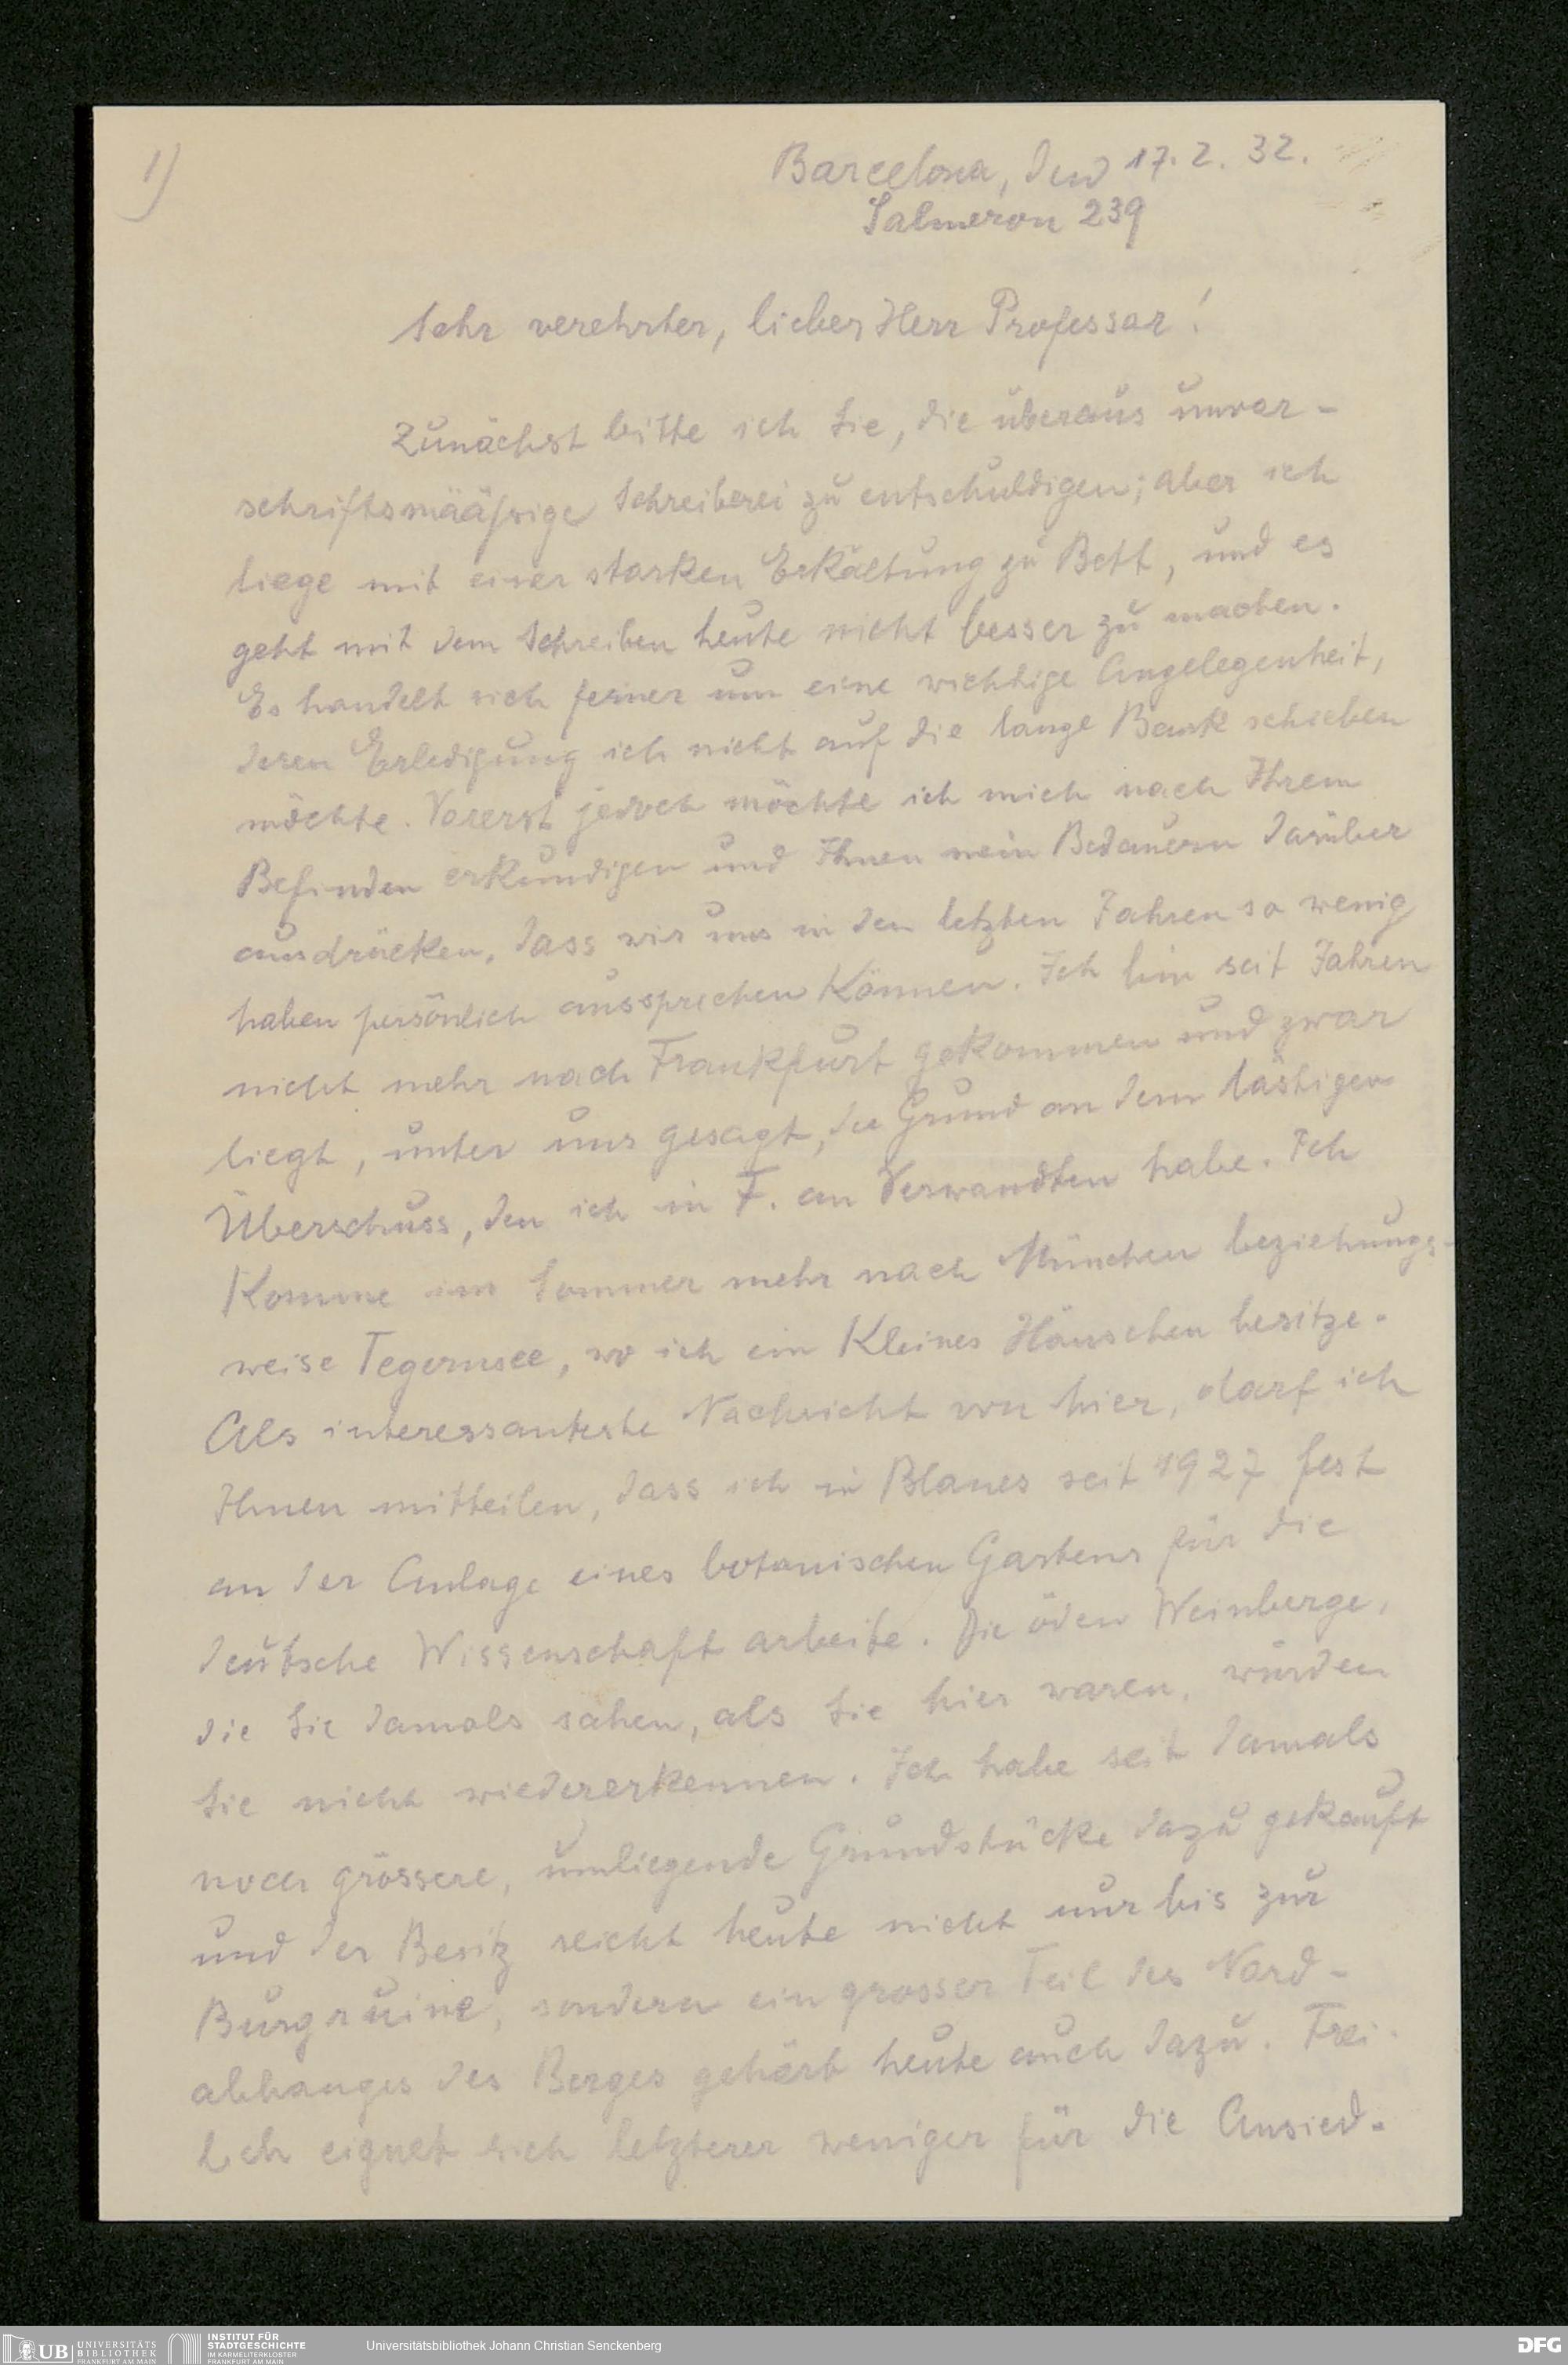 1)
Barcelona, den 17. 2. 32.
Salmeron 239
Sehr verehrter, lieber Herr Professor!
Zunächst bitte ich Sie, die überaus unvor-
schriftsmäässige Schreiberei zu entschuldigen; aber ich
liege mit einer starken Erkältung zu Bett, und es
geht mit dem Schreiben heute nicht besser zu machen.
Es handelt sich ferner um eine wichtige Angelegenheit,
deren Erledigung ich nicht auf die lange Bank schieben
möchte. Vorerst jedoch möchte ich mich nach Ihrem
Befinden erkundigen und Ihnen mein Bedauern darüber
ausdrücken, dass wir uns in den letzten Jahren so wenig
haben persönlich aussprechen können. Ich bin seit Jahren
nicht mehr nach Frankfurt gekommen und zwar
liegt, unter uns gesagt, der Grund an dem lästigen
Überschuss, den ich in F. an Verwandten habe. Ich
komme im Sommer mehr nach München beziehungs-
weise Tegernsee, wo ich ein kleines Häuschen besitze.
Als interessanteste Nachricht von hier, darf ich
Ihnen mitteilen, dass ich in Blanes seit 1927 fest
an der Anlage eines botanischen Gartens für die
deutsche Wissenschaft arbeite. Die öden Weinberge,
die Sie damals sahen, als Sie hier waren, würden
Sie nicht wiedererkennen. Ich habe seit damals
noch grössere, umliegende Grundstücke dazu gekauft
und der Besitz reicht heute nicht nur bis zur
Burgruine, sondern ein grosser Teil des Nord-
abhanges des Berges gehört heute auch dazu. Frei-
lich eignet sich letzterer weniger für die Ansied-
UB UNIVERSITÄTS
BIBLIOTHEK
FRANKFURT AM MAIN
INSTITUT FÜR
STADTGESCHICHTE
IM KARMELITERKLOSTER
FRANKFURT AM MAIN
Universitätsbibliothek Johann Christian Senckenberg
DFG